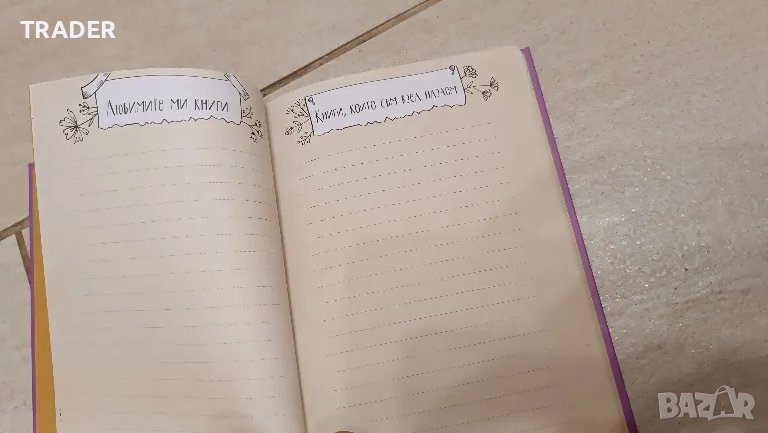 TRADER
Любимите ми книги
Книги, които съм взел назаем
BAZAR